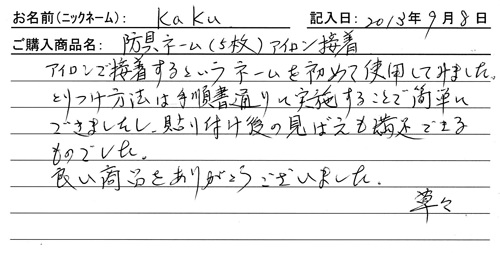 お名前(ニックネーム): kaku 記入日: 2013年9月8日
ご購入商品名: 防具ネーム(5枚)アイロン接着
アイロンで接着するというネームを初めて使用してみました。
とりつけ方法は手順書通りに実施することで簡単に
できましたし、貼り付け後の見ばえも満足できる
ものでした。
良い商品をありがとうございました。
草々